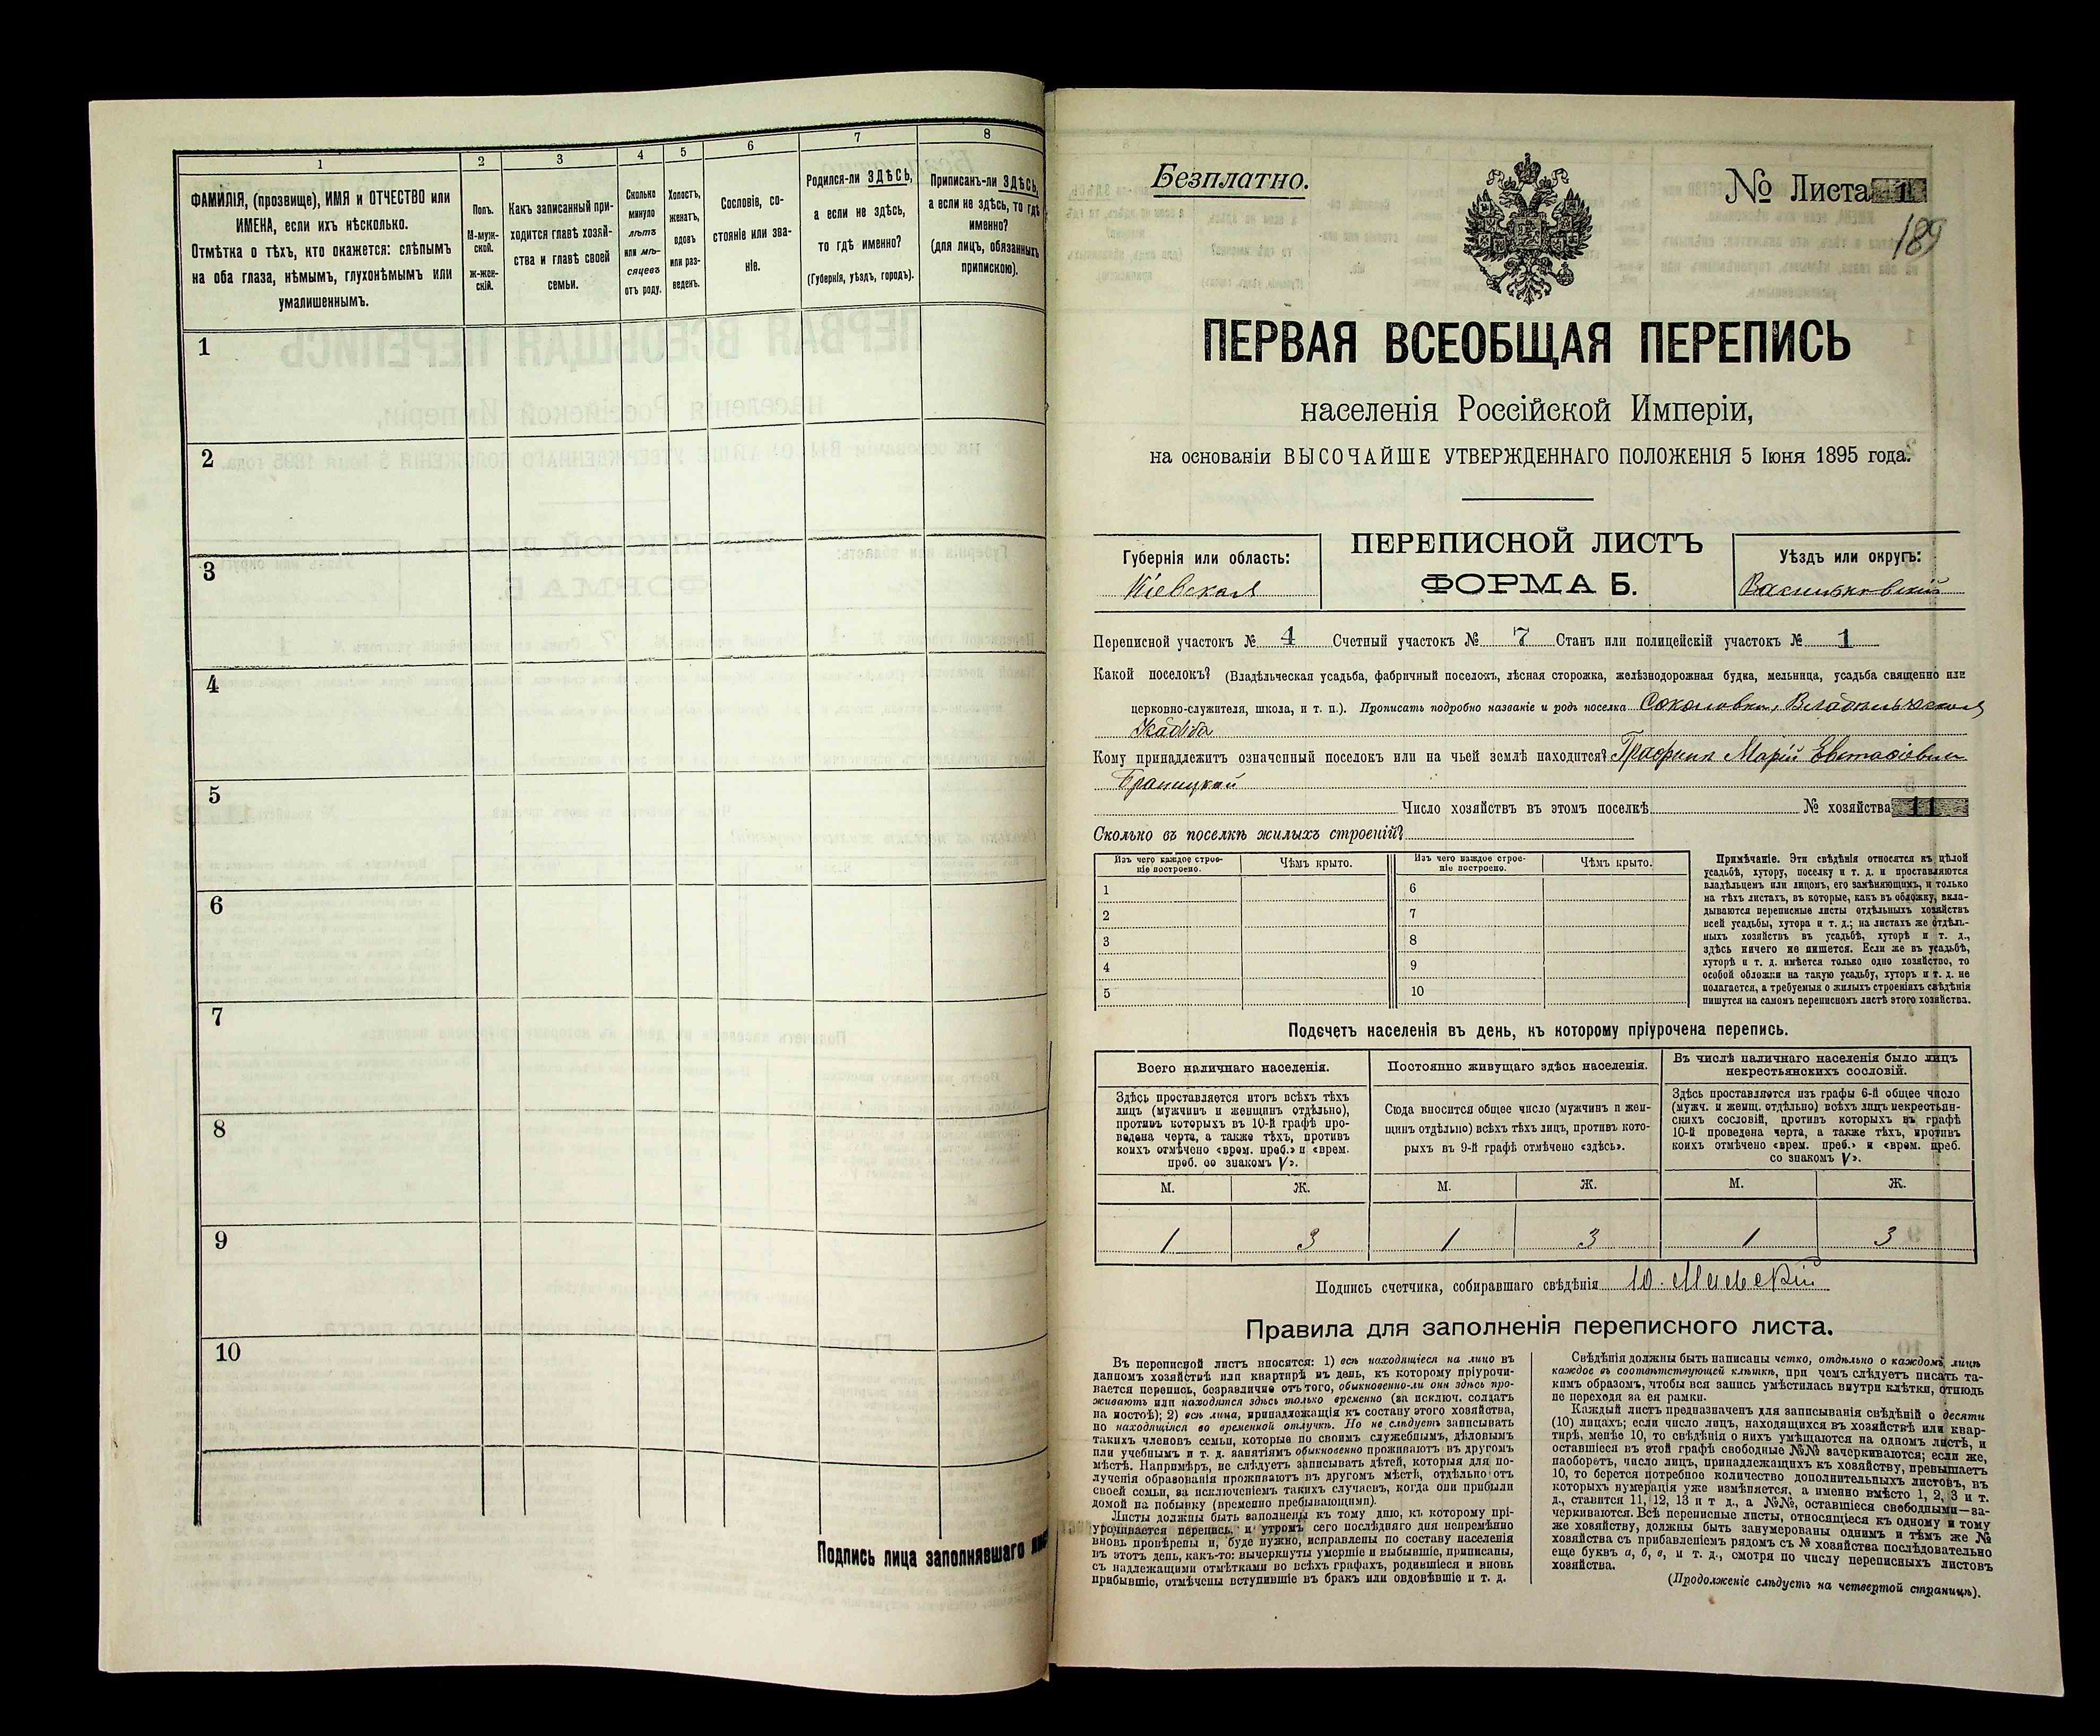 1
ФАМИЛІЯ, (прозвище), ИМЯ и ОТЧЕСТВО или
ИМЕНА, если ихъ нѣсколько.
Отмѣтка о тѣхъ, кто окажется: слѣпымъ
на оба глаза, нѣмымъ, глухонѣмымъ или
умалишеннымъ.
2
Полъ.
М-муж-
ской.
Ж-жен-
скій.
3
Какъ записанный при-
ходится главѣ хозяй-
ства и главѣ своей
семьи.
4
Сколько
минуло
лѣтъ
или мѣ-
сяцевъ
отъ роду.
5
Холостъ,
женатъ,
вдовъ
или раз-
веденъ.
6
Сословіе, со-
стояніе или зва-
ніе.
7
Родился-ли ЗДѢСЬ,
а если не здѣсь,
то гдѣ именно?
(Губернія, уѣздъ, городъ).
8
Приписанъ-ли ЗДѢСЬ,
а если не здѣсь, то гдѣ
именно?
(для лицъ, обязанныхъ
припискою).
1
2
3
4
5
6
7
8
9
10
Подпись лица заполнявшаго
Безплатно.
№ Листа 1
189
ПЕРВАЯ ВСЕОБЩАЯ ПЕРЕПИСЬ
населенія Россійской Имперіи,
на основаніи ВЫСОЧАЙШЕ УТВЕРЖДЕННАГО ПОЛОЖЕНІЯ 5 Іюня 1895 года.
Губернія или область:
Кіевская
ПЕРЕПИСНОЙ ЛИСТЪ
ФОРМА Б.
Уѣздъ или округъ:
Васильковскій
Переписной участокъ № 4 Счетный участокъ № 7 Станъ или полицейскій участокъ № 1
Какой поселокъ? (Владѣльческая усадьба, фабричный поселокъ, лѣсная сторожка, желѣзнодорожная будка, мельница, усадьба священно или
церковно-служителя, школа, и т. п.). Прописать подробно названіе и родъ поселка Соколовка, Владѣльческая
Усадьба
Кому принадлежитъ означенный поселокъ или на чьей землѣ находится? Графинѣ Маріи Евстафіевнѣ
Браницкой
Число хозяйствъ въ этомъ поселкѣ № хозяйства 11
Сколько въ поселкѣ жилыхъ строеній?
Изъ чего каждое строе-
ніе построено.
Чѣмъ крыто.
Изъ чего каждое строе-
ніе построено.
Чѣмъ крыто.
1 6
2 7
3 8
4 9
5 10
Примѣчаніе. Эти свѣдѣнія относятся къ цѣлой
усадьбѣ, хутору, поселку и т. д. и проставляются
владѣльцемъ или лицомъ, его замѣняющимъ, и только
на тѣхъ листахъ, въ которые, какъ въ обложку, вкла-
дываются переписные листы отдѣльныхъ хозяйствъ
всей усадьбы, хутора и т. д.; на листахъ же отдѣль-
ныхъ хозяйствъ въ усадьбѣ, хуторѣ и т. д.,
здѣсь ничего не пишется. Если же въ усадьбѣ,
хуторѣ и т. д. имѣется только одно хозяйство, то
особой обложки на такую усадьбу, хуторъ и т. д. не
полагается, а требуемыя о жилыхъ строеніяхъ свѣдѣнія
пишутся на самомъ переписномъ листѣ этого хозяйства.
Подсчетъ населенія въ день, къ которому пріурочена перепись.
Всего наличнаго населенія.
Здѣсь проставляется итогъ всѣхъ тѣхъ
лицъ (мужчинъ и женщинъ отдѣльно),
противъ которыхъ въ 10-й графѣ про-
ведена черта, а также тѣхъ, противъ
коихъ отмѣчено «врем. преб.» и «врем.
преб. со знакомъ V».
Постоянно живущаго здѣсь населенія.
Сюда вносится общее число (мужчинъ и жен-
щинъ отдѣльно) всѣхъ тѣхъ лицъ, противъ кото-
рыхъ въ 9-й графѣ отмѣчено «здѣсь».
Въ числѣ наличнаго населенія было лицъ
некрестьянскихъ сословій.
Здѣсь проставляется изъ графы 6-й общее число
(мужч. и женщ. отдѣльно) всѣхъ лицъ некрестьян-
скихъ сословій, противъ которыхъ въ графѣ
10-й проведена черта, а также тѣхъ, противъ
коихъ отмѣчено «врем. преб.» и «врем. преб.
со знакомъ V».
М. Ж. М. Ж. М. Ж.
1 3 1 3 1 3
Подпись счетчика, собиравшаго свѣдѣнія Ю.
Правила для заполненія переписного листа.
Въ переписной листъ вносятся: 1) всѣ находящіеся на лицо въ
данномъ хозяйствѣ или квартирѣ въ день, къ которому пріурочи-
вается перепись, безразлично отъ того, обыкновенно-ли они здѣсь про-
живаютъ или находятся здѣсь только временно (за исключ. солдатъ
на постоѣ); 2) всѣ лица, принадлежащія къ составу этого хозяйства,
но находящіяся во временной отлучкѣ. Но не слѣдуетъ записывать
такихъ членовъ семьи, которые по своимъ служебнымъ, дѣловымъ
или учебнымъ и т. д. занятіямъ обыкновенно проживаютъ въ другомъ
мѣстѣ. Напримѣръ, не слѣдуетъ записывать дѣтей, которыя для по-
лученія образованія проживаютъ въ другомъ мѣстѣ, отдѣльно отъ
своей семьи, за исключеніемъ такихъ случаевъ, когда они прибыли
домой на побывку (временно пребывающими).
Листы должны быть заполнены къ тому дню, къ которому прі-
урочивается перепись, и утромъ сего послѣдняго дня непремѣнно
вновь провѣрены и, буде нужно, исправлены по составу населенія
въ этотъ день, какъ-то: вычеркнуты умершіе и выбывшіе, приписаны,
съ надлежащими отмѣтками во всѣхъ графахъ, родившіеся и вновь
прибывшіе, отмѣчены вступившіе въ бракъ или овдовѣвшіе и т. д.
Свѣдѣнія должны быть написаны четко, отдѣльно о каждомъ лицѣ
каждое въ соотвѣтствующей клѣткѣ, при чемъ слѣдуетъ писать та-
кимъ образомъ, чтобы вся запись умѣстилась внутри клѣтки, отнюдь
не переходя за ея рамки.
Каждый листъ предназначенъ для записыванія свѣдѣній о десяти
(10) лицахъ; если число лицъ, находящихся въ хозяйствѣ или квар-
тирѣ, менѣе 10, то свѣдѣнія о нихъ умѣщаются на одномъ листѣ, и
оставшіеся въ этой графѣ свободные №№ зачеркиваются; если же,
наоборотъ, число лицъ, принадлежащихъ къ хозяйству, превышаетъ
10, то берется потребное количество дополнительныхъ листовъ, въ
которыхъ нумерація уже измѣняется, а именно вмѣсто 1, 2, 3 и т.
д., ставится 11, 12, 13 и т д., а №№, оставшіеся свободными—за-
черкиваются. Всѣ переписные листы, относящіеся къ одному и тому
же хозяйству, должны быть занумерованы однимъ и тѣмъ же №
хозяйства съ прибавленіемъ рядомъ съ № хозяйства послѣдовательно
еще буквъ а, б, в, и т. д., смотря по числу переписныхъ листовъ
хозяйства.
(Продолженіе слѣдуетъ на четвертой страницѣ).